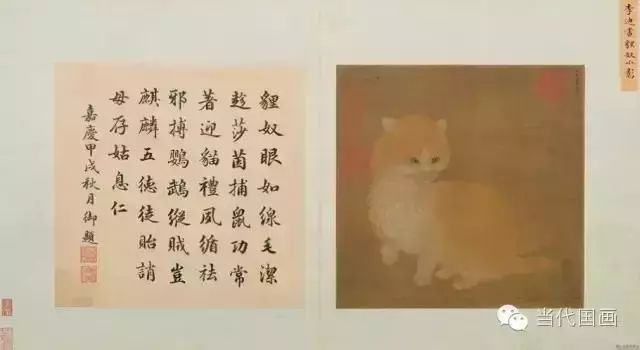 李迪畫貍奴小影
貍奴眼如線毛潔
趂莎茵捕鼠功常
著迎貓禮夙循祛
邪搏鸚鵡縱賊豈
麒麟五德徒貽誚
毋存姑息仁
嘉慶甲戌秋月御題
当代国画